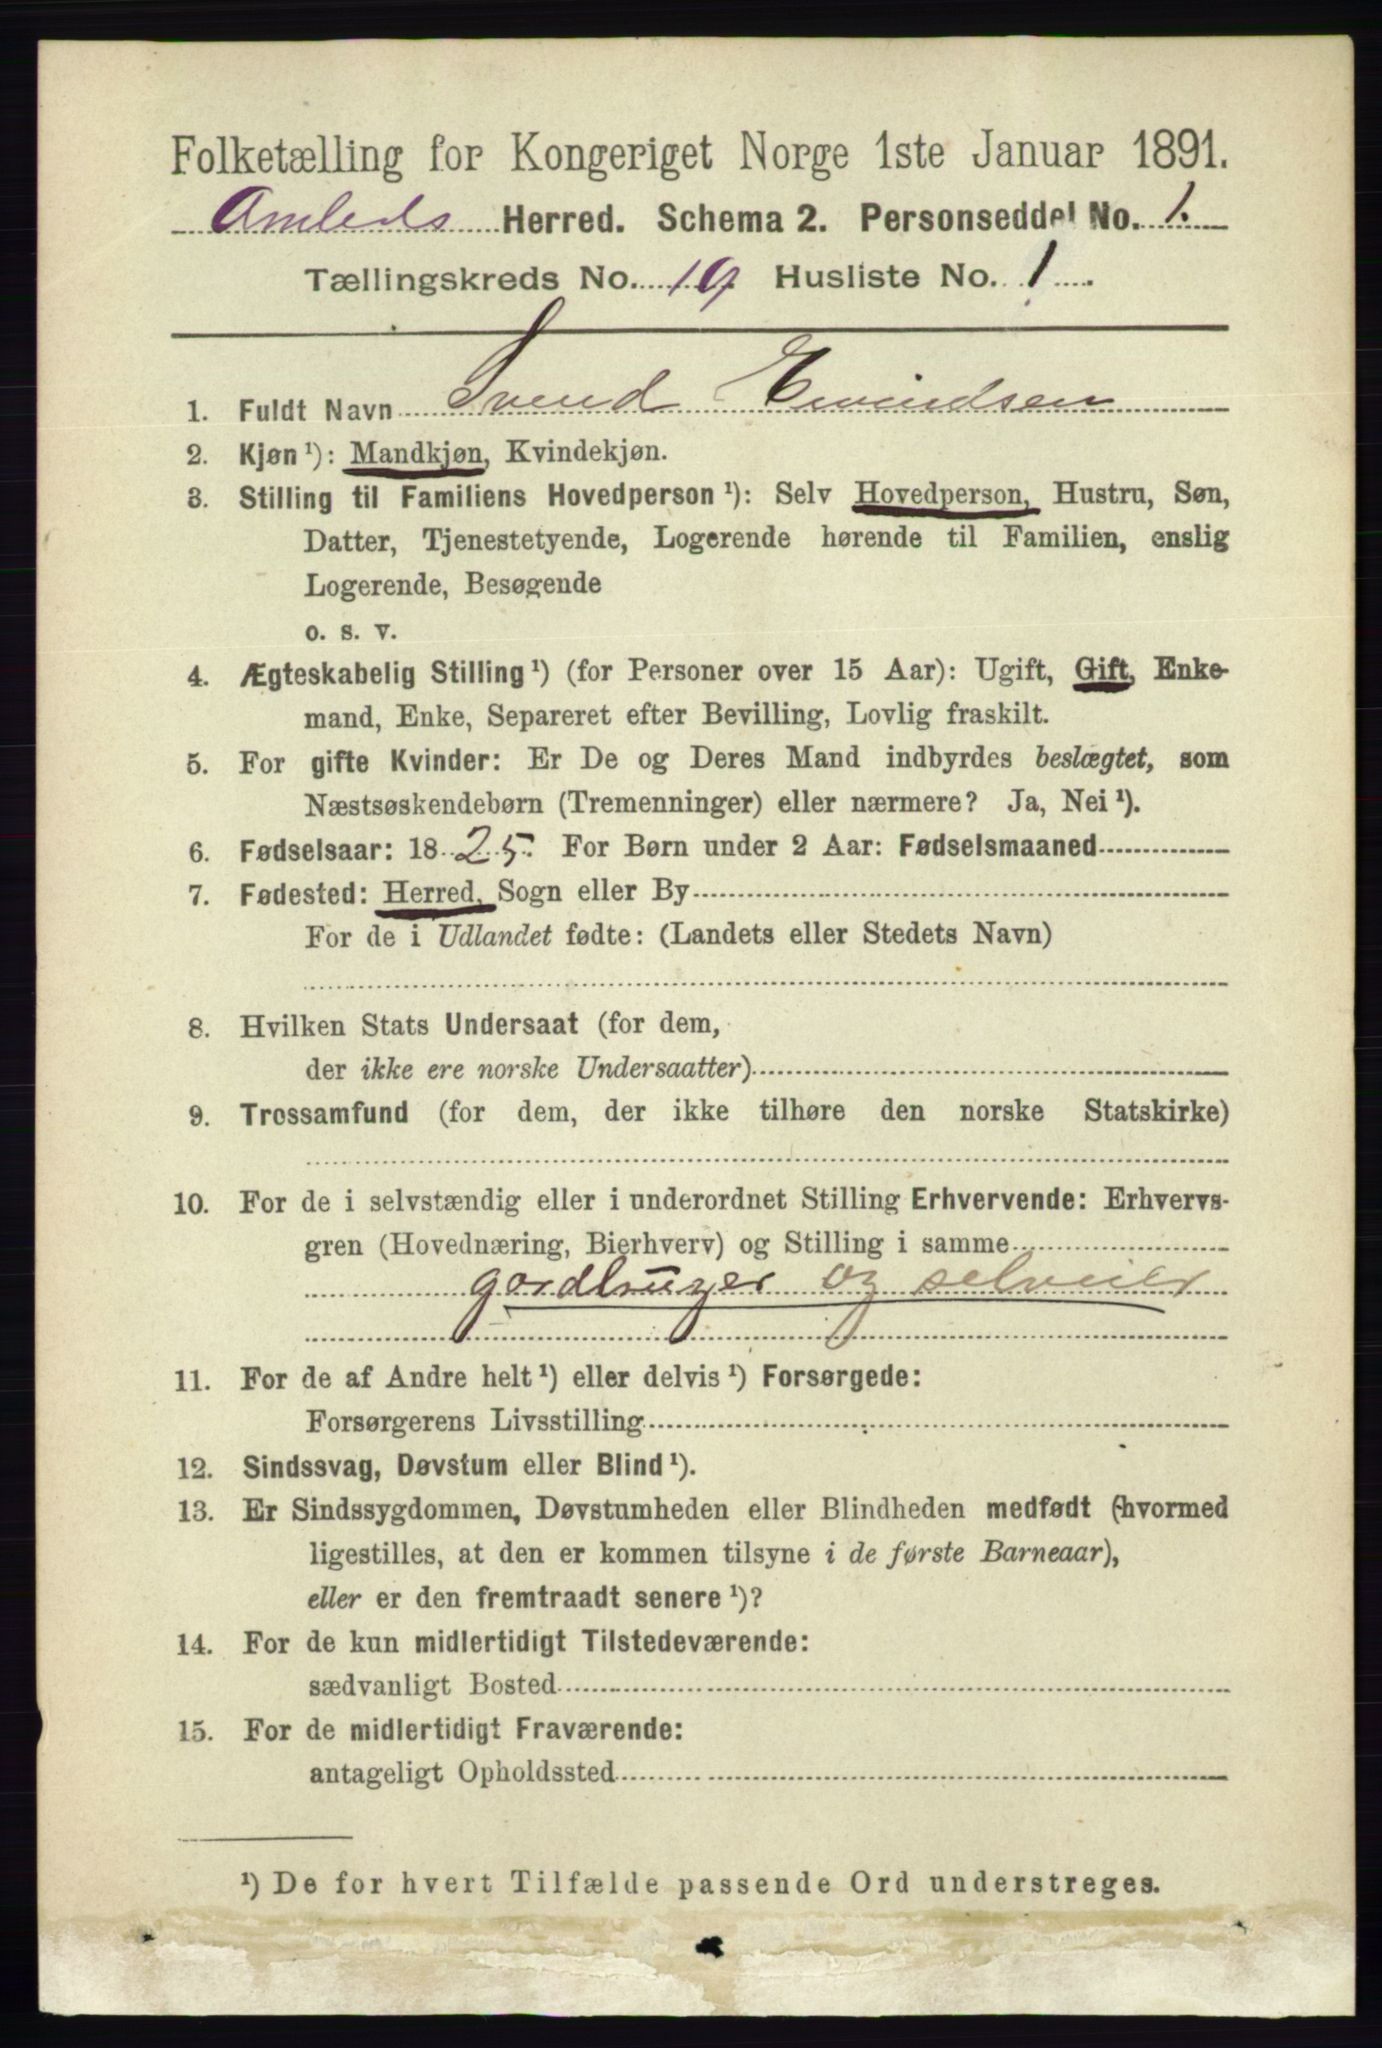 Folketælling for Kongeriget Norge 1ste Januar 1891.
Amleds Herred. Schema 2. Personseddel No. 1.
Tællingskreds No. 10. Husliste No. 1.
1. Fuldt Navn Svend Eivindsen
2. Kjøn ¹): Mandkjøn, Kvindekjøn.
3. Stilling til Familiens Hovedperson ¹): Selv Hovedperson, Hustru, Søn,
Datter, Tjenestetyende, Logerende hørende til Familien, enslig
Logerende, Besøgende
o. s. v.
4. Ægteskabelig Stilling ¹) (for Personer over 15 Aar): Ugift, Gift, Enke-
mand, Enke, Separeret efter Bevilling, Lovlig fraskilt.
5. For gifte Kvinder: Er De og Deres Mand indbyrdes beslægtet, som
Næstsøskendebørn (Tremenninger) eller nærmere? Ja, Nei ¹).
6. Fødselsaar: 1825. For Børn under 2 Aar: Fødselsmaaned
7. Fødested: Herred, Sogn eller By
For de i Udlandet fødte: (Landets eller Stedets Navn)
8. Hvilken Stats Undersaat (for dem,
der ikke ere norske Undersaatter)
9. Trossamfund (for dem, der ikke tilhøre den norske Statskirke)
10. For de i selvstændig eller i underordnet Stilling Erhvervende: Erhvervs-
gren (Hovednæring, Bierhverv) og Stilling i samme
gordbruger og selveier
11. For de af Andre helt ¹) eller delvis ¹) Forsørgede:
Forsørgerens Livsstilling
12. Sindssvag, Døvstum eller Blind ¹).
13. Er Sindssygdommen, Døvstumheden eller Blindheden medfødt (hvormed
ligestilles, at den er kommen tilsyne i de første Barneaar),
eller er den fremtraadt senere ¹)?
14. For de kun midlertidigt Tilstedeværende:
sædvanligt Bosted
15. For de midlertidigt Fraværende:
antageligt Opholdssted
¹) De for hvert Tilfælde passende Ord understreges.